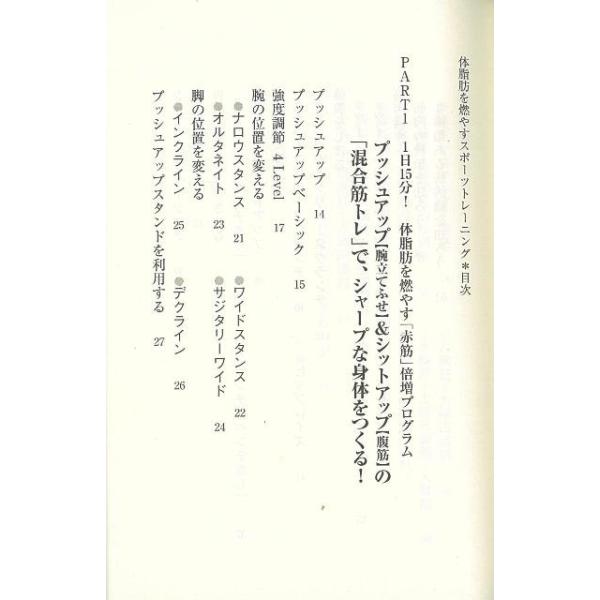 体脂肪を燃やすスポーツトレーニング＊目次
PART1　1日15分！　体脂肪を燃やす「赤筋」倍増プログラム
プッシュアップ【腕立てふせ】&シットアップ【腹筋】の
「混合筋トレ」で、シャープな身体をつくる！
プッシュアップ　14
プッシュアップベーシック　15
強度調節　4 Level　17
腕の位置を変える
●ナロウスタンス　21　●ワイドスタンス　22
●オルタネイト　23　●サジタリーワイド　24
脚の位置を変える
●インクライン　25　●デクライン　26
プッシュアップスタンドを利用する　27